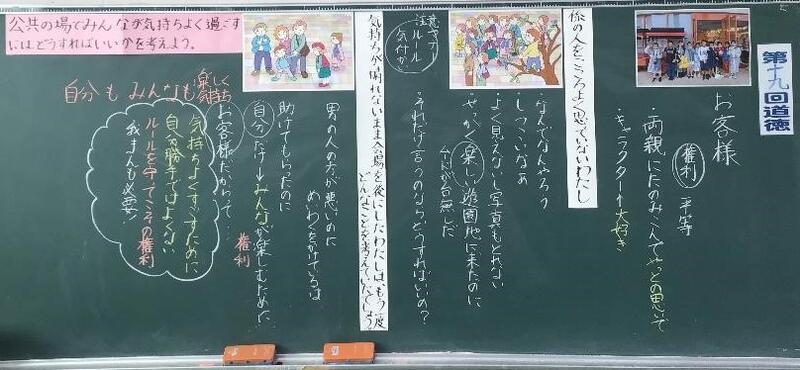 第十九回道徳
お客様
権利 平等
・両親にたのみこんでやっとの思いで
・キャラクター大好き
係の人をこころよく思っていないわたし
・なんでなんやろう
・しつこいなぁ
・よく見えないし写真もとれない
・せっかく楽しい遊園地に来たのに
ムードが台無しだ
・それだけ言うのならどうすればいいの?
注意
ルール
気付か
気持ちが晴れないまま会場を後にしたわたしは、もう一度
どんなことを考えていたでしょう。
男の人の方が悪いのに
めいわくをかけているは
助けてもらったのに
自分だけ→みんなが楽しむために
権利
お客様だからって…
公共の場でみんなが気持ちよく過ごす
にはどうすればいいかを考えよう。
自分もみんなも楽しく
気持ち
気持ちよくすごすために
自分勝手ではよくない
ルールを守ってこその権利
がまんも必要!